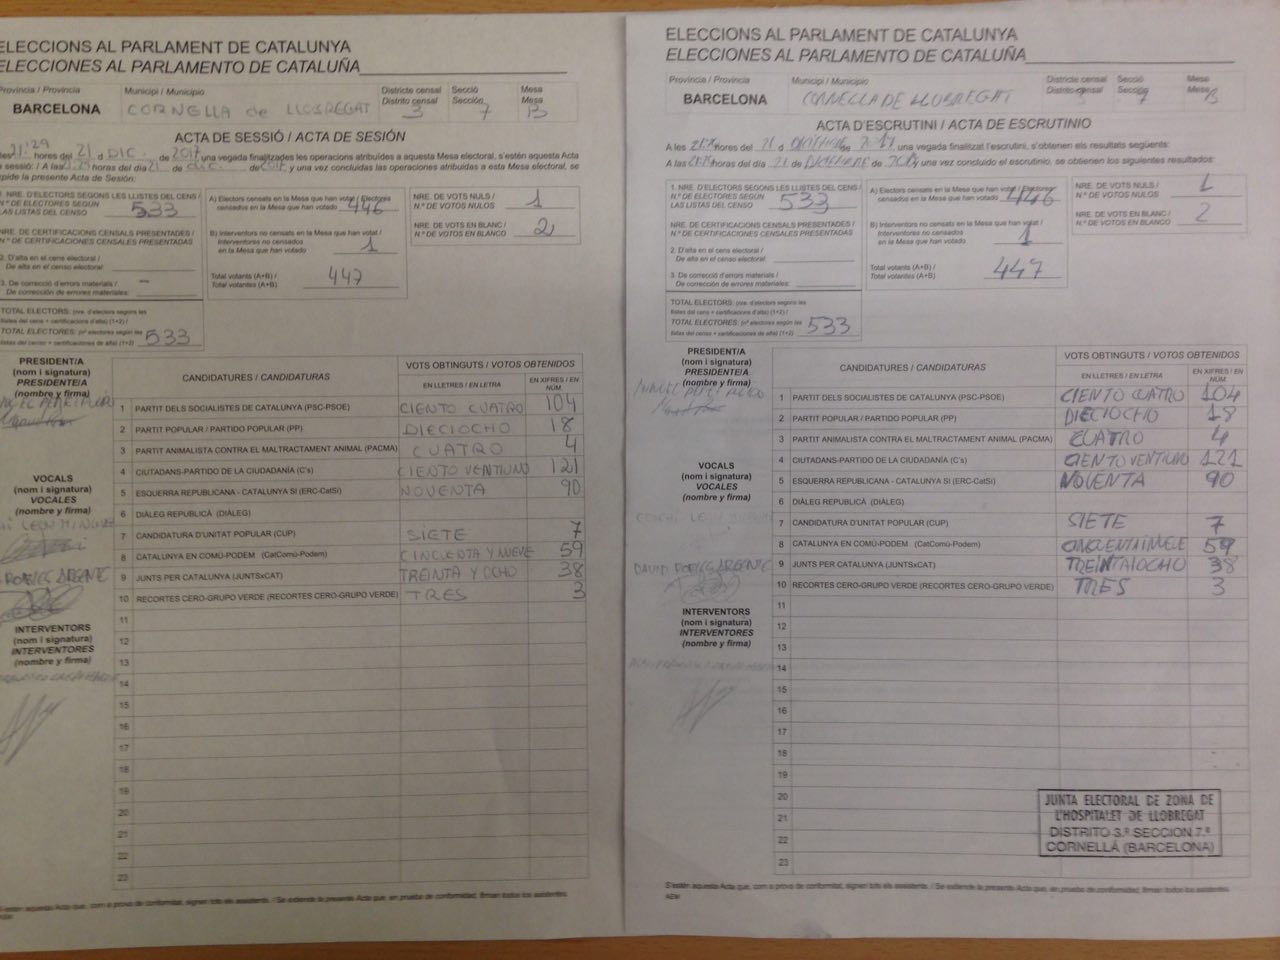 ELECCIONS AL PARLAMENT DE CATALUNYA
ELECCIONES AL PARLAMENTO DE CATALUÑA
Provincia / Provincia
BARCELONA
Municipi / Municipio
CORNELLA de LLOBREGAT
Districte censal
Distrito censal
3
Secció
Sección
7
Mesa
Mesa
B
ACTA DE SESSIÓ / ACTA DE SESIÓN
les 21'29 hores del 21 d DIC. de 2017 una vegada finalitzades les operacions atribuïdes a aquesta Mesa electoral, s'estén aquesta Acta
sessió: / A las 21:29 horas del día 21 de dic. de 2017 y una vez concluidas las operaciones atribuidas a esta Mesa electoral, se
expide la presente Acta de Sesión:
1. NRE. D'ELECTORS SEGONS LES LLISTES DEL CENS /
N.º DE ELECTORES SEGÚN
LAS LISTAS DEL CENSO
533
NRE. DE CERTIFICACIONS CENSALS PRESENTADES /
N.º DE CERTIFICACIONES CENSALES PRESENTADAS
2. D'alta en el cens electoral /
De alta en el censo electoral:
3. De correcció d'errors materials /
De corrección de errores materiales:
TOTAL ELECTORS: (nre. d'electors segons les
llistes del cens + certificacions d'alta) (1+2) /
TOTAL ELECTORES: (nº electores según las
listas del censo + certificaciones de alta) (1+2)
533
A) Electors censats en la Mesa que han votat / Electores
censados en la Mesa que han votado
446
B) Interventors no censats en la Mesa que han votat /
Interventores no censados
en la Mesa que han votado
1
Total votants (A+B) /
Total votantes (A+B)
447
NRE. DE VOTS NULS /
N.º DE VOTOS NULOS
1
NRE. DE VOTS EN BLANC /
N.º DE VOTOS EN BLANCO
2
PRESIDENT/A
(nom i signatura)
PRESIDENTE/A
(nombre y firma)
VOCALS
(nom i signatura)
VOCALES
(nombre y firma)
INTERVENTORS
(nom i signatura)
INTERVENTORES
(nombre y firma)
CANDIDATURES / CANDIDATURAS
VOTS OBTINGUTS / VOTOS OBTENIDOS
EN LLETRES / EN LETRA
EN XIFRES / EN NÚM.
1 PARTIT DELS SOCIALISTES DE CATALUNYA (PSC-PSOE) CIENTO CUATRO 104
2 PARTIT POPULAR / PARTIDO POPULAR (PP) DIECIOCHO 18
3 PARTIT ANIMALISTA CONTRA EL MALTRACTAMENT ANIMAL (PACMA) CUATRO 4
4 CIUTADANS-PARTIDO DE LA CIUDADANÍA (C's) CIENTO VENTIUNO 121
5 ESQUERRA REPUBLICANA - CATALUNYA SI (ERC-CatSi) NOVENTA 90
6 DIÀLEG REPUBLICÀ (DIÀLEG)
7 CANDIDATURA D'UNITAT POPULAR (CUP) SIETE 7
8 CATALUNYA EN COMÚ-PODEM (CatComú-Podem) CINCUENTA Y NUEVE 59
9 JUNTS PER CATALUNYA (JUNTSxCAT) TREINTA Y OCHO 38
10 RECORTES CERO-GRUPO VERDE (RECORTES CERO-GRUPO VERDE) TRES 3
11
12
13
14
15
16
17
18
19
20
21
22
23
S'estén aquesta Acta que, com a prova de conformitat, signen tots els assistents. / Se extiende la presente Acta que, en prueba de conformidad, firman todos los asistentes.
ELECCIONS AL PARLAMENT DE CATALUNYA
ELECCIONES AL PARLAMENTO DE CATALUÑA
Provincia / Provincia
BARCELONA
Municipi / Municipio
CORNELLA DE LLOBREGAT
Districte censal
Distrito censal
3
Secció
Sección
7
Mesa
Mesa
B
ACTA D'ESCRUTINI / ACTA DE ESCRUTINIO
A les hores del 21 d DICIEMBRE de 2017 una vegada finalitzat l'escrutini, s'obtenen els resultats següents:
A las horas del día 21 de DICIEMBRE de 2017 y una vez concluido el escrutinio, se obtienen los siguientes resultados:
1. NRE. D'ELECTORS SEGONS LES LLISTES DEL CENS /
N.º DE ELECTORES SEGÚN
LAS LISTAS DEL CENSO
533
NRE. DE CERTIFICACIONS CENSALS PRESENTADES /
N.º DE CERTIFICACIONES CENSALES PRESENTADAS
2. D'alta en el cens electoral /
De alta en el censo electoral:
3. De correcció d'errors materials /
De corrección de errores materiales:
TOTAL ELECTORS: (nre. d'electors segons les
llistes del cens + certificacions d'alta) (1+2) /
TOTAL ELECTORES: (nº electores según las
listas del censo + certificaciones de alta) (1+2)
533
A) Electors censats en la Mesa que han votat / Electores
censados en la Mesa que han votado
446
B) Interventors no censats en la Mesa que han votat /
Interventores no censados
en la Mesa que han votado
1
Total votants (A+B) /
Total votantes (A+B)
447
NRE. DE VOTS NULS /
N.º DE VOTOS NULOS
1
NRE. DE VOTS EN BLANC /
N.º DE VOTOS EN BLANCO
2
PRESIDENT/A
(nom i signatura)
PRESIDENTE/A
(nombre y firma)
VOCALS
(nom i signatura)
VOCALES
(nombre y firma)
INTERVENTORS
(nom i signatura)
INTERVENTORES
(nombre y firma)
CANDIDATURES / CANDIDATURAS
VOTS OBTINGUTS / VOTOS OBTENIDOS
EN LLETRES / EN LETRA
EN XIFRES / EN NÚM.
1 PARTIT DELS SOCIALISTES DE CATALUNYA (PSC-PSOE) CIENTO CUATRO 104
2 PARTIT POPULAR / PARTIDO POPULAR (PP) DIECIOCHO 18
3 PARTIT ANIMALISTA CONTRA EL MALTRACTAMENT ANIMAL (PACMA) CUATRO 4
4 CIUTADANS-PARTIDO DE LA CIUDADANÍA (C's) CIENTO VENTIUNO 121
5 ESQUERRA REPUBLICANA - CATALUNYA SI (ERC-CatSi) NOVENTA 90
6 DIÀLEG REPUBLICÀ (DIÀLEG)
7 CANDIDATURA D'UNITAT POPULAR (CUP) SIETE 7
8 CATALUNYA EN COMÚ-PODEM (CatComú-Podem) CINCUENTAINUEVE 59
9 JUNTS PER CATALUNYA (JUNTSxCAT) TREINTAIOCHO 38
10 RECORTES CERO-GRUPO VERDE (RECORTES CERO-GRUPO VERDE) TRES 3
11
12
13
14
15
16
17
18
19
20
21
22
23
JUNTA ELECTORAL DE ZONA DE
L'HOSPITALET DE LLOBREGAT
DISTRITO 3.º SECCION 7.ª
CORNELLÁ (BARCELONA)
S'estén aquesta Acta que, com a prova de conformitat, signen tots els assistents. / Se extiende la presente Acta que, en prueba de conformidad, firman todos los asistentes.